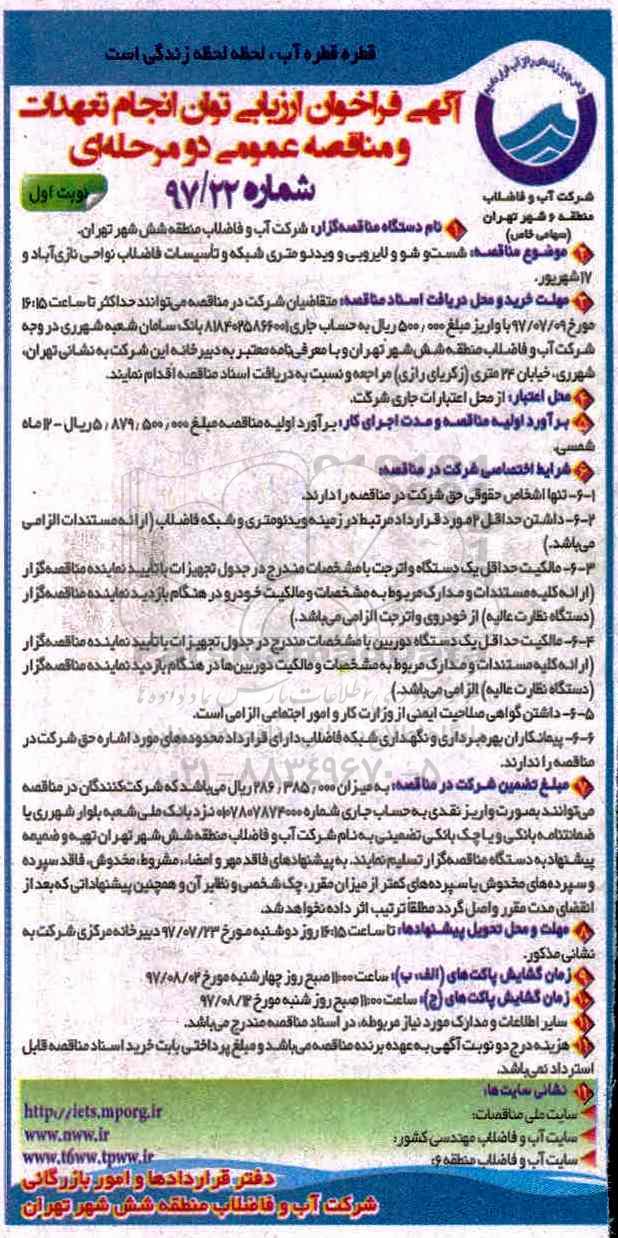 قطره قطره آب، لحظه لحظه زندگی است
آگهی فراخوان ارزیابی توان انجام تعهدات
و مناقصه عمومی دو مرحله‌ای
شماره ۹۷/۲۲
نوبت اول
شرکت آب و فاضلاب
منطقه ۶ شهر تهران
(سهامی خاص)
۱ نام دستگاه مناقصه‌گزار: شرکت آب و فاضلاب منطقه شش شهر تهران.
۲ موضوع مناقصه: شست و شو و لایروبی و ویدئو متری شبکه و تأسیسات فاضلاب نواحی نازی‌آباد و
۱۷ شهریور.
۳ مهلت خرید و محل دریافت اسناد مناقصه: متقاضیان شرکت در مناقصه می‌توانند حداکثر تا ساعت ۱۶:۱۵
مورخ ۹۷/۰۷/۰۹ با واریز مبلغ ۵۰۰٫۰۰۰ ریال به حساب جاری ۸۱۸۴۰۲۵۸۶۶۰۰۱ بانک سامان شعبه شهرری در وجه
شرکت آب و فاضلاب منطقه شش شهر تهران و با معرفی‌نامه معتبر به دبیرخانه این شرکت به نشانی تهران،
شهرری، خیابان ۲۴ متری (زکریای رازی) مراجعه و نسبت به دریافت اسناد مناقصه اقدام نمایند.
۴ محل اعتبار: از محل اعتبارات جاری شرکت.
۵ برآورد اولیه مناقصه و مدت اجرای کار: برآورد اولیه مناقصه مبلغ ۵٫۸۷۹٫۵۰۰٫۰۰۰ ریال - ۱۲ ماه
شمسی.
۶ شرایط اختصاصی شرکت در مناقصه:
۶-۱- تنها اشخاص حقوقی حق شرکت در مناقصه را دارند.
۶-۲- داشتن حداقل ۲ مورد قرارداد مرتبط در زمینه ویدئومتری و شبکه فاضلاب (ارائه مستندات الزامی
می‌باشد.)
۶-۳- مالکیت حداقل یک دستگاه واترجت با مشخصات مندرج در جدول تجهیزات با تأیید نماینده مناقصه‌گزار
(ارائه کلیه مستندات و مدارک مربوط به مشخصات و مالکیت خودرو در هنگام بازدید نماینده مناقصه‌گزار
(دستگاه نظارت عالیه) از خودروی واترجت الزامی می‌باشد.)
۶-۴- مالکیت حداقل یک دستگاه دوربین با مشخصات مندرج در جدول تجهیزات با تأیید نماینده مناقصه‌گزار
(ارائه کلیه مستندات و مدارک مربوط به مشخصات و مالکیت دوربین‌ها در هنگام بازدید نماینده مناقصه‌گزار
(دستگاه نظارت عالیه) الزامی می‌باشد.)
۶-۵- داشتن گواهی صلاحیت ایمنی از وزارت کار و امور اجتماعی الزامی است.
۶-۶- پیمانکاران بهره‌برداری و نگهداری شبکه فاضلاب دارای قرارداد محدوده‌های مورد اشاره حق شرکت در
مناقصه را ندارند.
۷ مبلغ تضمین شرکت در مناقصه: به میزان ۲۸۶٫۳۸۵٫۰۰۰ ریال می‌باشد که شرکت‌کنندگان در مناقصه
می‌توانند بصورت واریز نقدی به حساب جاری شماره ۰۱۰۷۸۰۷۸۷۴۰۰۰ نزد بانک ملی شعبه بلوار شهرری یا
ضمانتنامه بانکی و یا چک بانکی تضمینی به نام شرکت آب و فاضلاب منطقه شش شهر تهران تهیه و ضمیمه
پیشنهاد به دستگاه مناقصه‌گزار تسلیم نمایند. به پیشنهادهای فاقد مهر و امضاء، مشروط، مخدوش، فاقد سپرده
و سپرده‌های مخدوش یا سپرده‌های کمتر از میزان مقرر، چک شخصی و نظایر آن و همچنین پیشنهاداتی که بعد از
انقضای مدت مقرر واصل گردد مطلقاً ترتیب اثر داده نخواهد شد.
۸ مهلت و محل تحویل پیشنهادها: تا ساعت ۱۶:۱۵ روز دوشنبه مورخ ۹۷/۰۷/۲۳ دبیرخانه مرکزی شرکت به
نشانی مذکور.
۹ زمان گشایش پاکت‌های (الف، ب): ساعت ۱۱:۰۰ صبح روز چهارشنبه مورخ ۹۷/۰۸/۰۲
۱۰ زمان گشایش پاکت‌های (ج): ساعت ۱۱:۰۰ صبح روز شنبه مورخ ۹۷/۰۸/۱۲
۱۱ سایر اطلاعات و مدارک مورد نیاز مربوطه، در اسناد مناقصه مندرج می‌باشد.
هزینه درج دو نوبت آگهی به عهده برنده مناقصه می‌باشد و مبلغ پرداختی بابت خرید اسناد مناقصه قابل
استرداد نمی‌باشد.
نشانی سایت‌ها:
سایت ملی مناقصات: http://iets.mporg.ir
سایت آب و فاضلاب مهندسی کشور: www.nww.ir
سایت آب و فاضلاب منطقه ۶: www.t6ww.tpww.ir
دفتر قراردادها و امور بازرگانی
شرکت آب و فاضلاب منطقه شش شهر تهران
۰۲۱-۸۸۳۴۹۶۷۰-۵